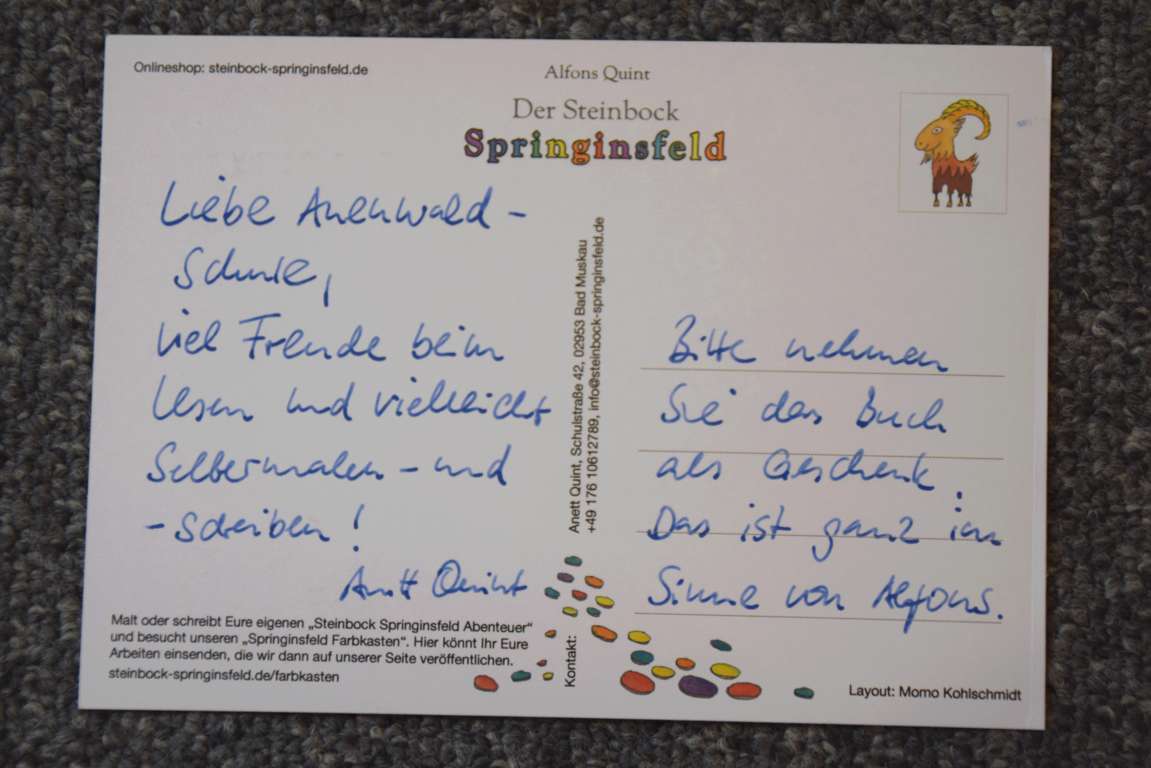 Onlineshop: steinbock-springinsfeld.de
Alfons Quint
Der Steinbock
Springinsfeld
Liebe Auenwald-
Schule,
viel Freude beim
Lesen und vielleicht
Selbermalen - und
- schreiben!
Anett Quint
Malt oder schreibt Eure eigenen „Steinbock Springinsfeld Abenteuer“
und besucht unseren „Springinsfeld Farbkasten“. Hier könnt Ihr Eure
Arbeiten einsenden, die wir dann auf unserer Seite veröffentlichen.
steinbock-springinsfeld.de/farbkasten
Kontakt:
Anett Quint, Schulstraße 42, 02953 Bad Muskau
+49 176 10612789, info@steinbock-springinsfeld.de
Bitte nehmen
Sie das Buch
als Geschenk.
Das ist ganz im
Sinne von Alfons.
Layout: Momo Kohlschmidt